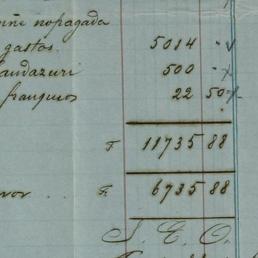 nopagada
gastos. 5014
andazuri 500
franqueos 22 50
F 11735 88
vor F. 6735 88
S. E. O.